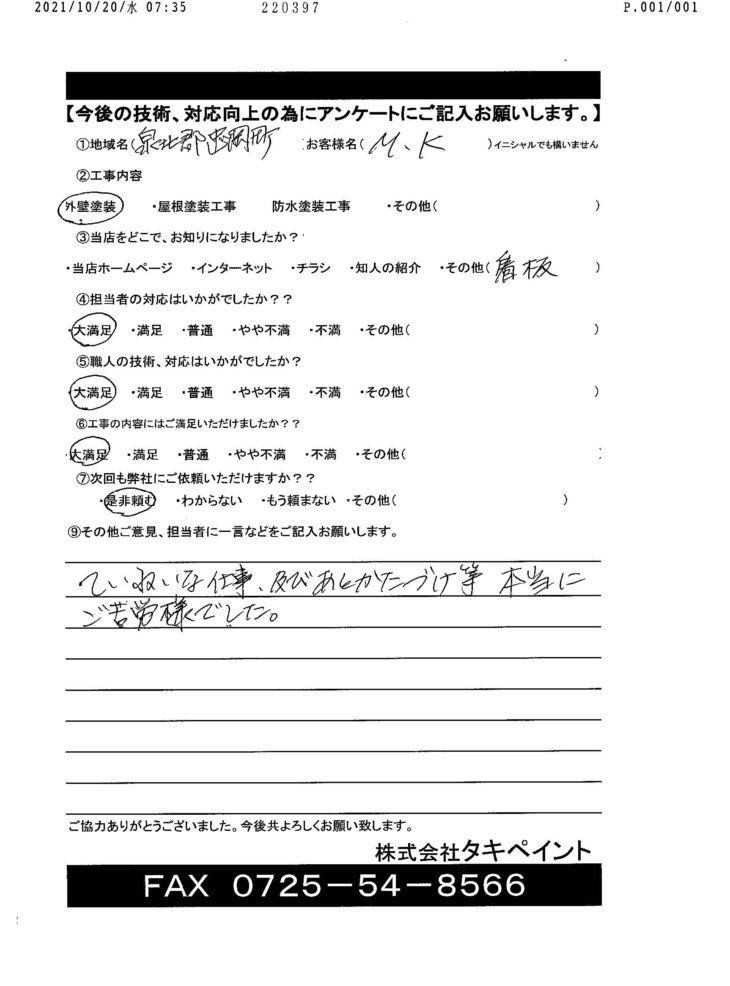 2021/10/20/水 07:35 220397 P.001/001
【今後の技術、対応向上の為にアンケートにご記入お願いします。】
①地域名(泉北郡忠岡町 お客様名( M、K )イニシャルでも構いません
②工事内容
外壁塗装 ・屋根塗装工事 防水塗装工事 ・その他( )
③当店をどこで、お知りになりましたか?
・当店ホームページ ・インターネット ・チラシ ・知人の紹介 ・その他( 看板 )
④担当者の対応はいかがでしたか??
・大満足 ・満足 ・普通 ・やや不満 ・不満 ・その他( )
⑤職人の技術、対応はいかがでしたか?
・大満足 ・満足 ・普通 ・やや不満 ・不満 ・その他( )
⑥工事の内容にはご満足いただけましたか??
・大満足 ・満足 ・普通 ・やや不満 ・不満 ・その他( )
⑦次回も弊社にご依頼いただけますか??
・是非頼む ・わからない ・もう頼まない ・その他( )
⑨その他ご意見、担当者に一言などをご記入お願いします。
ていねいな仕事、及びあとかたづけ等 本当に
ご苦労様でした。
ご協力ありがとうございました。今後共よろしくお願い致します。
株式会社タキペイント
FAX 0725-54-8566